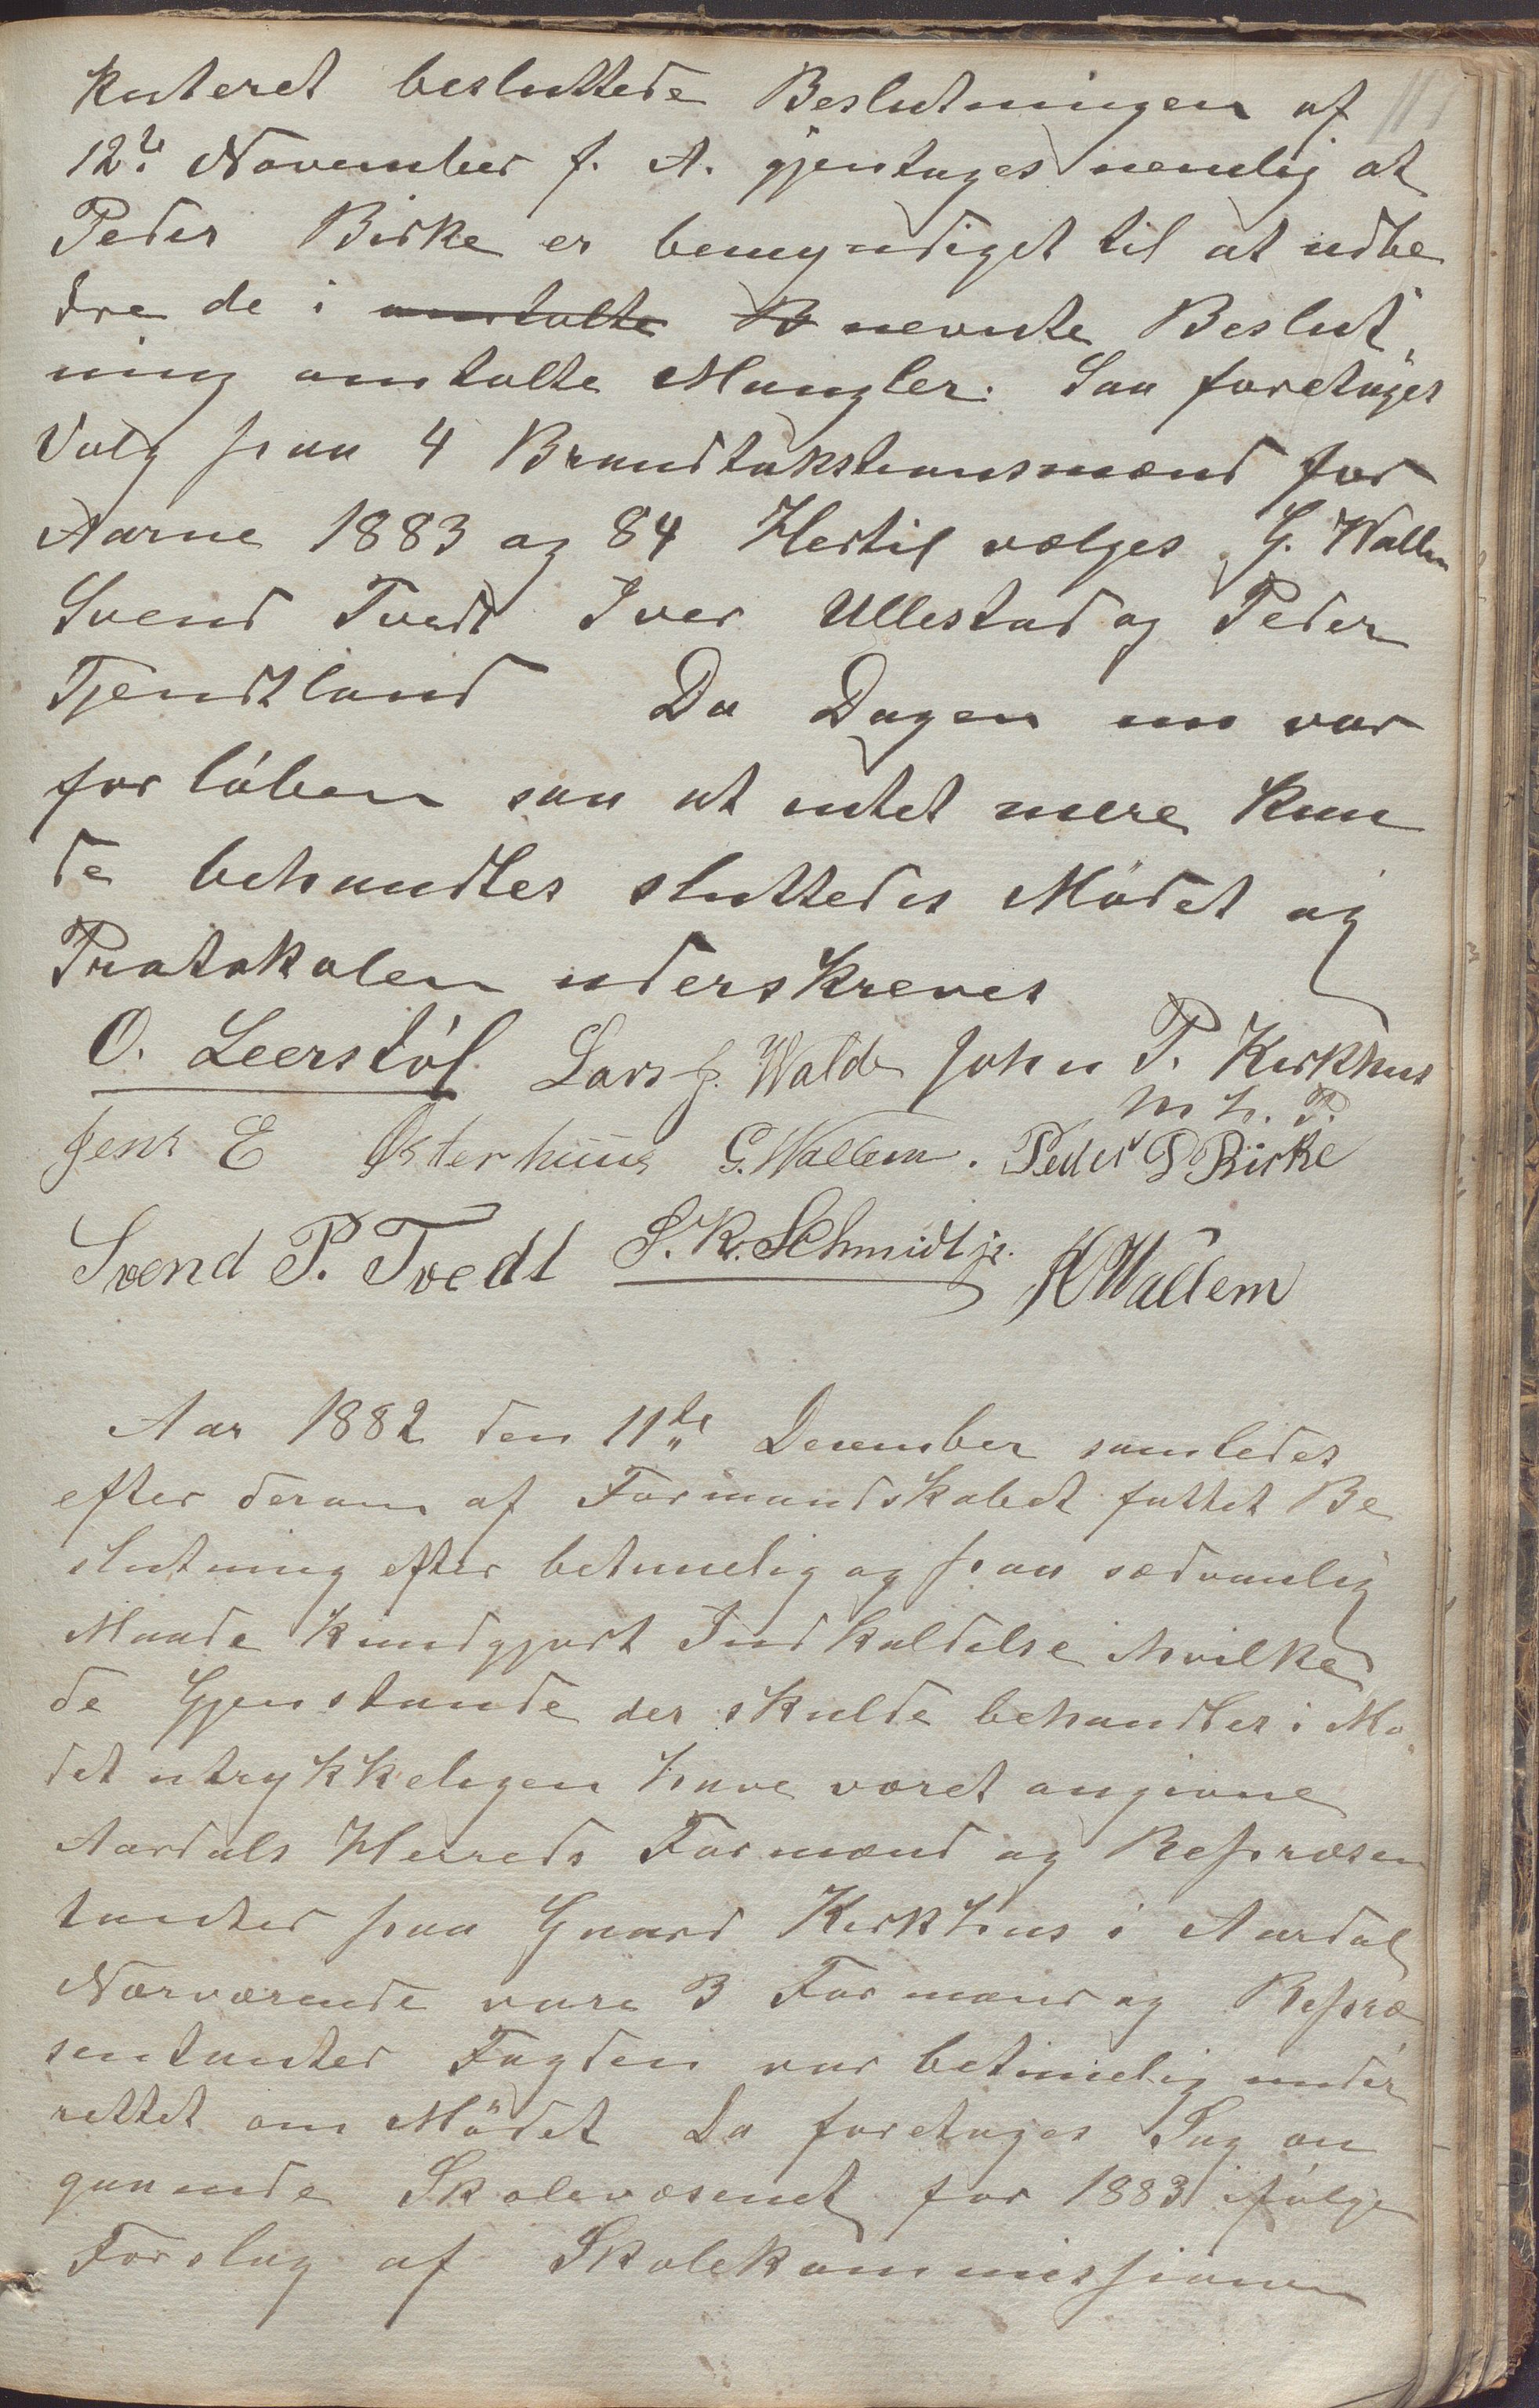 kuteret besluttede Beslutningen af
12te November f. A. gjentages nemlig at
Peder Birke er bemyndiget til at udbe
dre de i omtalte B nevnte Beslut
ning omtalte Mangler. Saa foretages
Valg paa 4 Brandtakstionsmænd for
Aarne 1883 og 84 Hertil vælges G. Wallem
Svend Tvedt Iver Ullestad og Peder
Tjendtland Da Dagen nu var
forløben saa at intet mere kun
de behandles sluttedes Mødet og
Protokolen underskreves
O. Leerstøl Lars J. Walde John P. Kirkhus
m. h. P.
Jens E Østerhuus G. Wallem. Peder P Birke
Svend P. Tvedt S. K. Schmidt jr. K Wallem
Aar 1882 den 11te December samledes
efter derom af Formandskabet fattet Be
slutning efter betimelig og paa sædvanlig
Maade kundgjort Indkaldelse hvilke
de Gjenstande der skulde behandles i Mø
det utrykkeligen have været angivne
Aardals Herreds Formænd og Repræsen
tanter paa Gaard Kirkhus i Aardal
Nærværende vare 3 Formænd og Repræ
sentanter Fogden var betimelig under
rettet om Mødet Da foretages Sag an
gaaende Skolevæsenet for 1883 ifølge
Forslag af Skolekommissionen